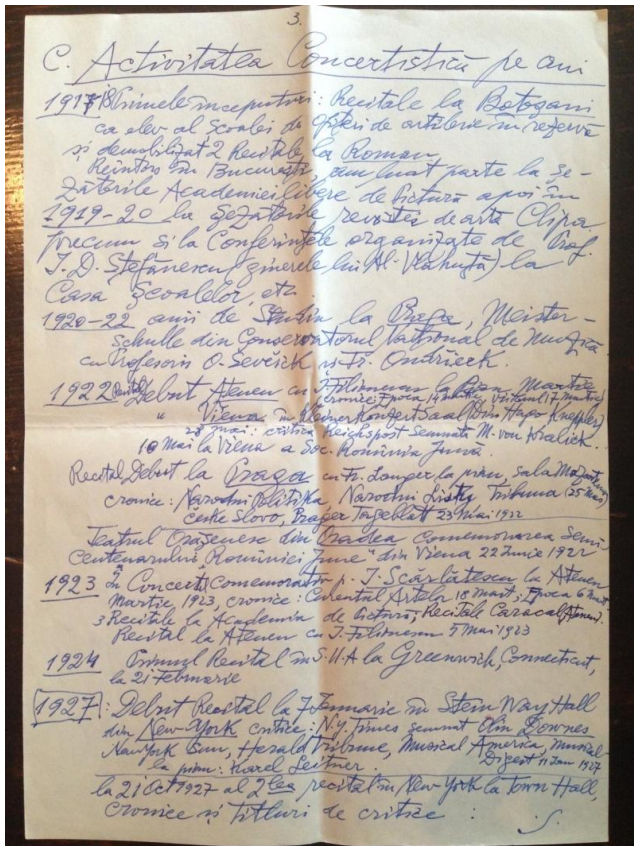 3.
C. Activitatea Concertistică pe ani
1917-18 Primele începuturi: Recitale la Botoșani
ca elev al școalei de ofițeri de artilerie în rezervă
și demobilizat 2 Recitale la Roman
Reîntors în București, am luat parte la șe-
zătorile Academiei libere de Pictură apoi în
1919-20 la șezătorile revistei de artă Clipa
precum și la Conferințele organizate de Prof.
I. D. Ștefănescu (ginerele lui Al. Vlahuță) la
Casa Școalelor, etc.
1920-22 anii de Studiu la Praga, Meister-
schulle din Conservatorul Național de Muzică
cu Profesorii O. Sevcick și Fr. Ondricek.
1922 Recital Debut Ateneu cu I. Filionescu la Pian, Martie
cronici: Epoca 14 martie, Viitorul 17 Martie)
" Viena în Kleiner Konzert Saal (Dir. Hugo Knepler)
28 mai: critica Reichspost semnată M. von Kralick.
10 Mai la Viena a Soc. România Jună.
Recital Debut la Praga cu Fr. Langer, la pian, sala Mozarteum
cronice: Narodni Politika Narodni Listy Tribuna (25 Mai)
České Slovo, Prager Tageblatt 23 Mai 1922
Teatrul Orășenesc din Oradea comemorarea Semi-
Centenarului "României June" din Viena 22 Iunie 1922
1923 În Concertul Comemorativ p. I. Scărlătescu la Ateneu
Martie 1923, cronice: Curentul Artelor 18 Mart; Epoca 6 mart.
3 Recitale la Academia de Pictură, Recitale Caracal (Ateneu).
Recital la Ateneu cu I. Filionescu 5 Mai 1923
1924 Primul Recital în S.U.A la Greenwich, Connecticut,
la 21 Februarie
1927: Debut Recital la 7 Ianuarie în Stein Way Hall
din New-York critice: N.Y. Times semnat Olin Downes
New York Sun, Herald Tribune, Musical America, Musical-
Digest 11 Jan 1927
la pian: Karel Leitner.
la 21 Oct 1927 al 2lea recital în New-York la Town Hall,
cronice și titluri de critice :